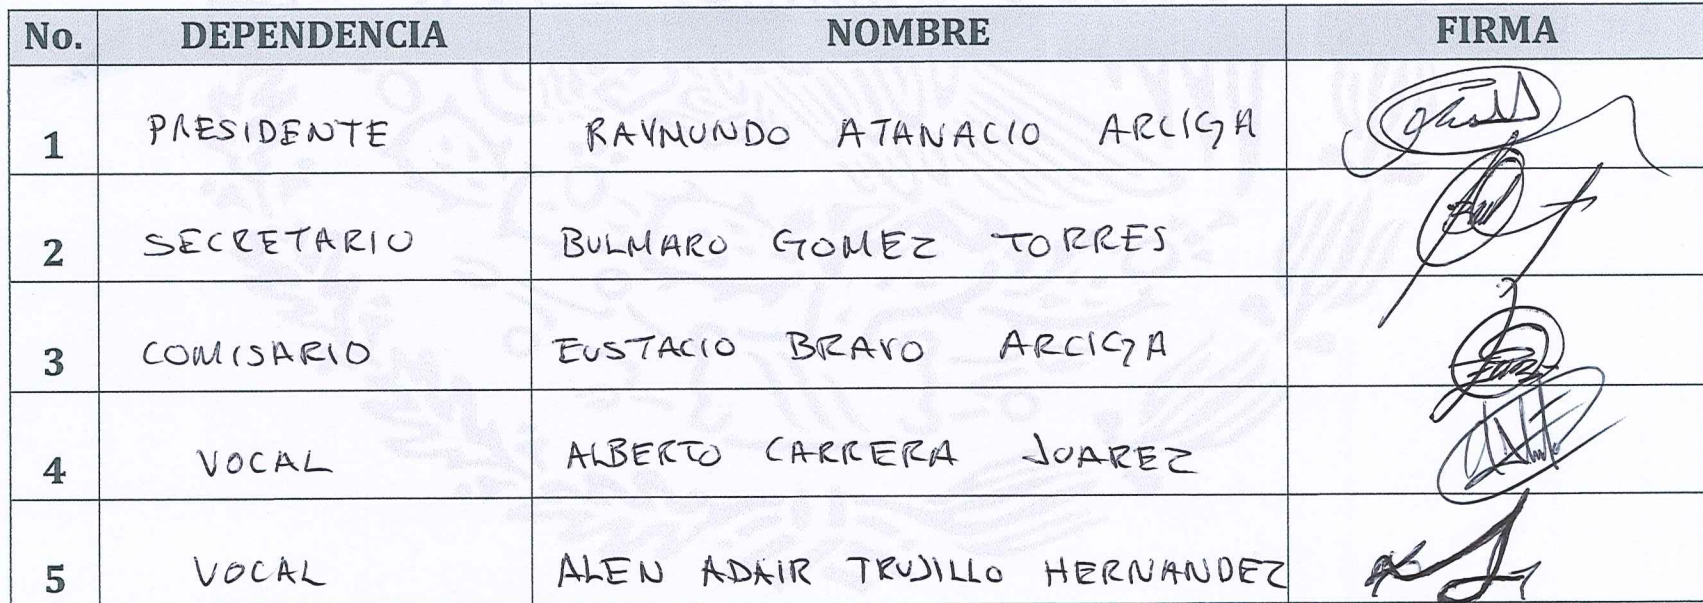 No. DEPENDENCIA NOMBRE FIRMA
1 PRESIDENTE RAYMUNDO ATANACIO ARCIGA
2 SECRETARIO BULMARO GOMEZ TORRES
3 COMISARIO EUSTACIO BRAVO ARCIGA
4 VOCAL ALBERTO CARRERA JUAREZ
5 VOCAL ALEN ADAIR TRUJILLO HERNANDEZ